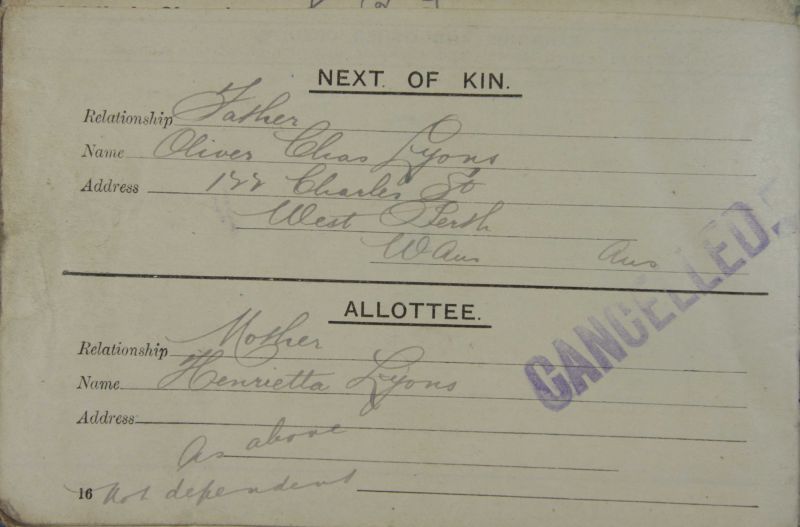 NEXT. OF KIN.
Relationship Father
Name Oliver Chas Lyons
Address 122 Charles St
West Perth
W Aus Aus
CANCELLED.
ALLOTTEE.
Relationship Mother
Name Henrietta Lyons
Address
As above
16 Not dependent